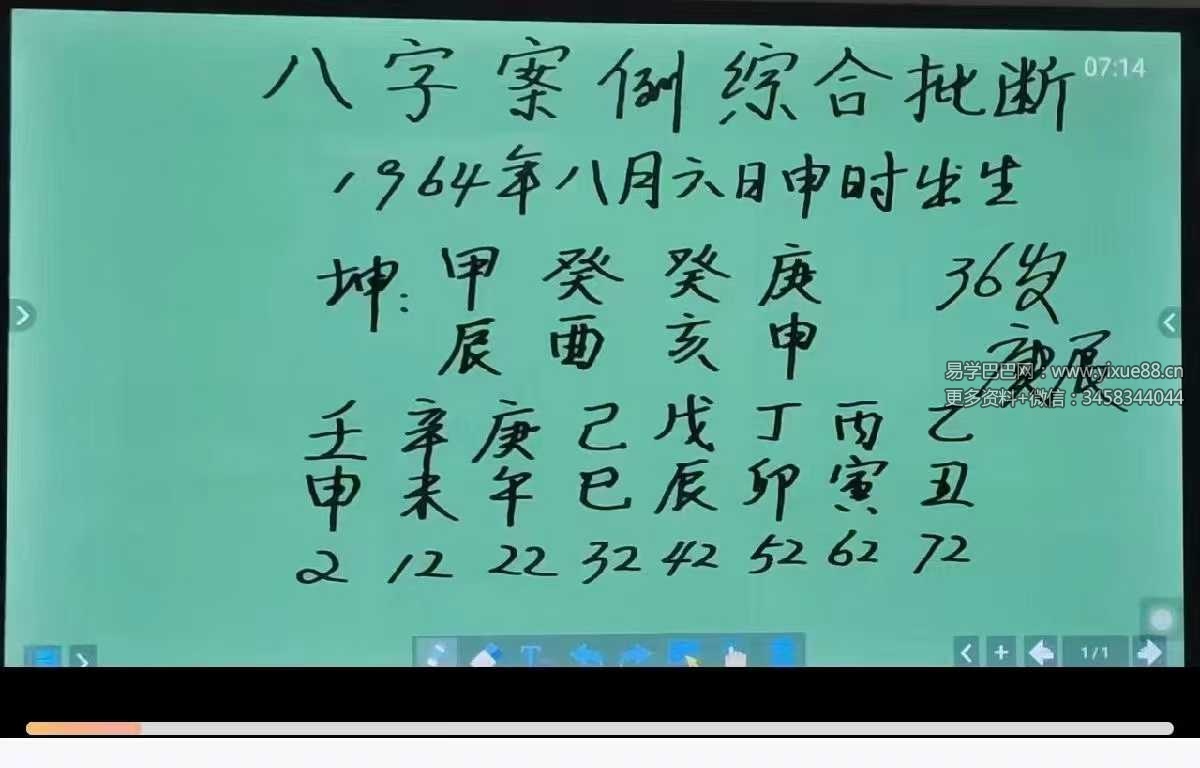 八字案例综合批断
07:14
1964年八月六日申时出生
坤: 甲 癸 癸 庚 36岁
辰 酉 亥 申 庚辰
易学巴巴网:www.yixue88.cn
更多资料+微信:3458344044
壬 辛 庚 己 戊 丁 丙 乙
申 未 午 巳 辰 卯 寅 丑
2 12 22 32 42 52 62 72
1/1